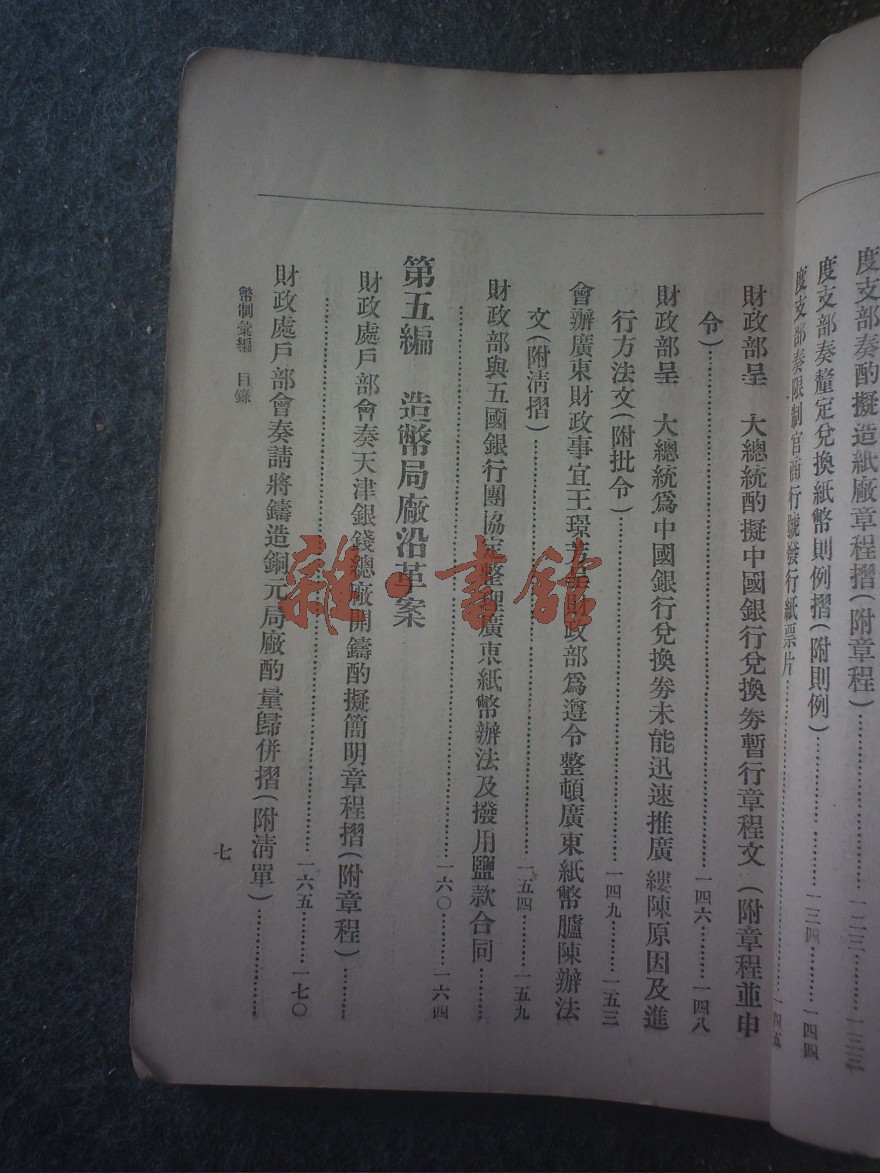 度支部奏酌擬造紙廠章程摺(附章程)………一二三……一三三
度支部奏釐定兌換紙幣則例摺(附則例)………一三四……一四四
度支部奏限制官商行號發行紙票片………一四五
財政部呈 大總統酌擬中國銀行兌換券暫行章程文(附章程並申
令)………一四六……一四八
財政部呈 大總統爲中國銀行兌換劵未能迅速推廣縷陳原因及進
行方法文(附批令)………一四九……一五三
會辦廣東財政事宜王璟芳呈財政部爲遵令整頓廣東紙幣臚陳辦法
文(附淸摺)………一五四……一五九
財政部與五國銀行團協定整理廣東紙幣辦法及撥用鹽款合同……
………一六〇……一六四
第五編 造幣局廠沿革案
財政處戶部會奏天津銀錢總廠開鑄酌擬簡明章程摺(附章程)……
………一六五……一七〇
財政處戶部會奏請將鑄造銅元局廠酌量歸併摺(附淸單)………
幣制彙編 目錄
七
雜·書館